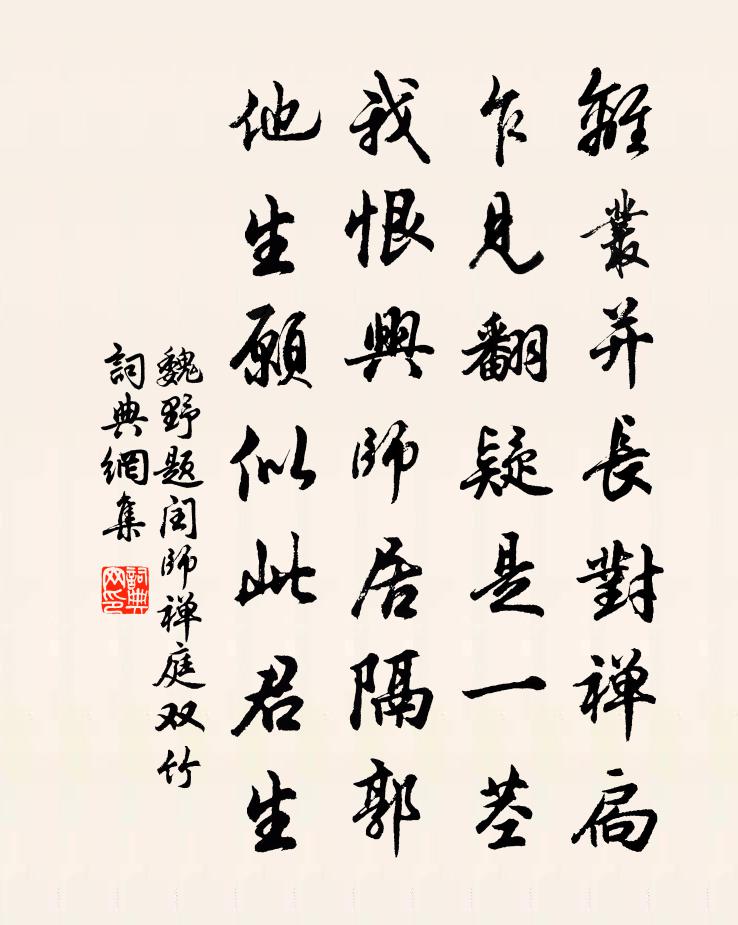 離叢并長對禪扃
乍見翻疑是一莖
我恨與師居隔郭
他生願似此君生
魏野题闰師禅庭双竹
詞典網集
詞典网印